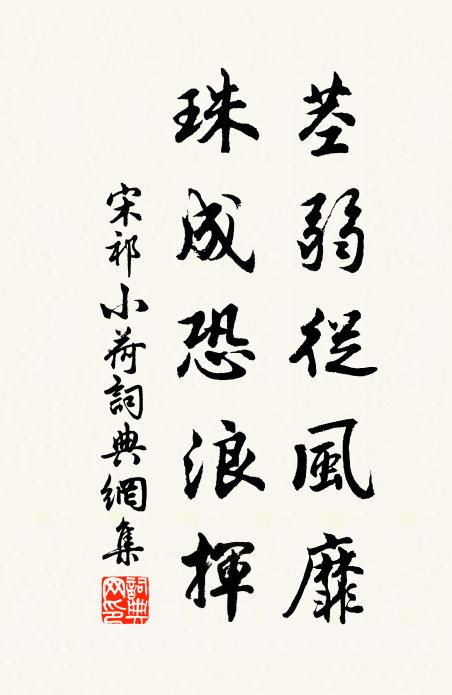 莖弱從風靡
珠成恐浪揮
宋祁小荷詞典網集
詞典网印